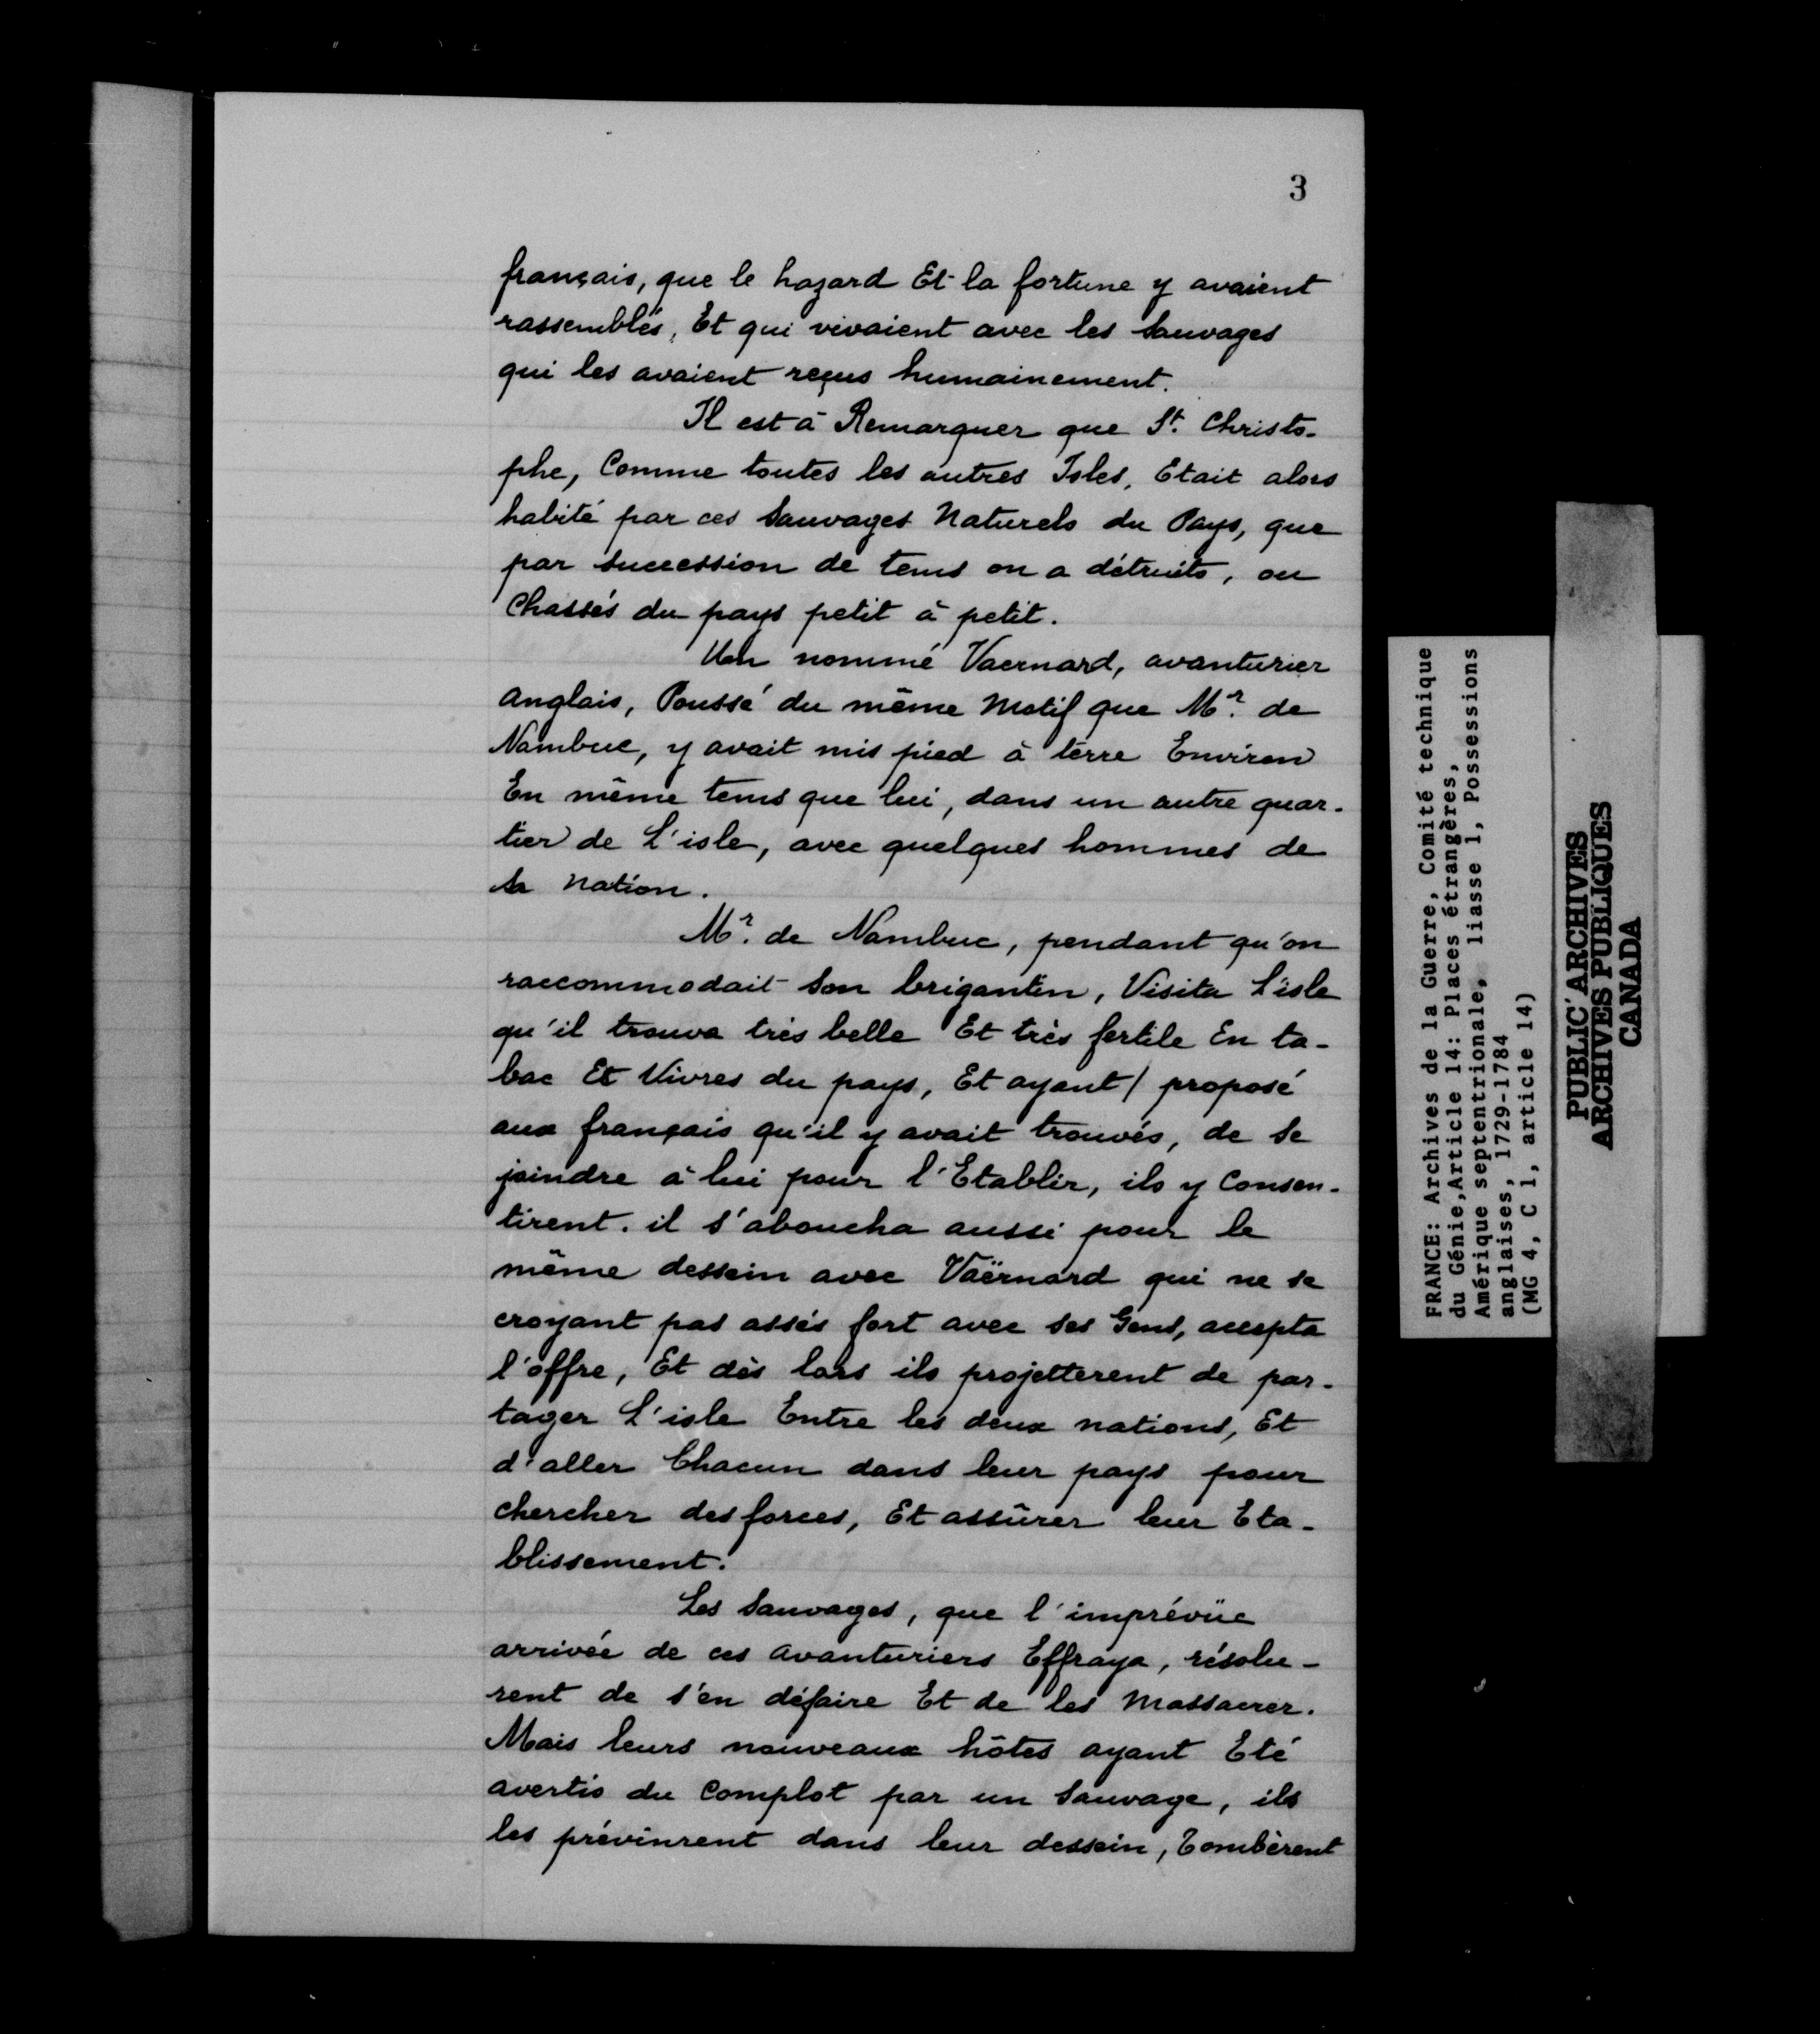 3
français, que le hazard Et la fortune y avaient
rassemblés, Et qui vivaient avec les Sauvages
qui les avaient reçus humainement.
Il est à Remarquer que St. Christo-
phe, Comme toutes les autres Isles, Etait alors
habité par ces Sauvages Naturels du Pays, que
par succession de tems on a détruits, ou
Chassés du pays petit à petit.
Un nommé Vaernard, avanturier
anglais, Poussé du même Motif que Mr. de
Nambuc, y avait mis pied à terre Environ
En même tems que lui, dans un autre quar-
tier de L'isle, avec quelques hommes de
sa Nation.
Mr. de Nambuc, pendant qu'on
raccommodait Son brigantin, Visita L'isle
qu'il trouva très belle Et très fertile En ta-
bac Et Vivres du pays, Et ayant / proposé
aux français qu'il y avait trouvés, de Se
joindre à lui pour l'Etablir, ils y Consen-
tirent. il s'aboucha aussi pour le
même dessein avec Vaërnard qui ne se
croyant pas assés fort avec ses Gens, accepta
l'offre, Et dès lors ils projetterent de par-
tager L'isle Entre les deux nations, Et
d'aller Chacun dans leur pays pour
chercher des forces, Et assûrer leur Eta-
blissement.
Les Sauvages, que l'imprévüe
arrivée de ces avanturiers Effraya, résolu-
rent de s'en défaire Et de les Massacrer.
Mais leurs nouveaux hôtes ayant Eté
avertis du Complot par un Sauvage, ils
les prévinrent dans leur dessein, Tombèrent
FRANCE: Archives de la Guerre, Comité technique
du Génie, Article 14: Places étrangères,
Amérique septentrionale, liasse 1, Possessions
anglaises, 1729-1784
(MG 4, C 1, article 14)
PUBLIC ARCHIVES
ARCHIVES PUBLIQUES
CANADA